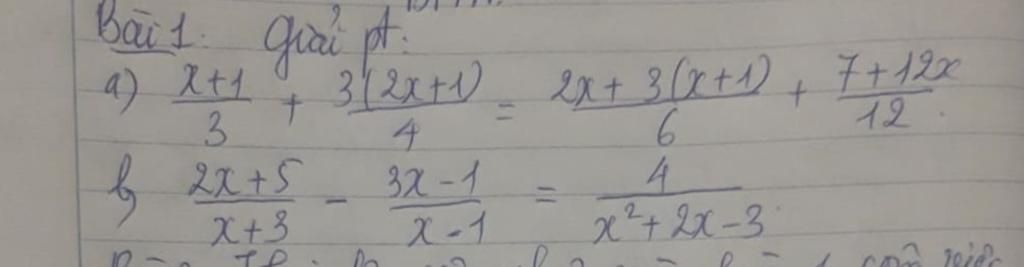 Bài 1. Giải pt:
a) \frac{x+1}{3} + \frac{3(2x+1)}{4} = \frac{2x+3(x+1)}{6} + \frac{7+12x}{12}.
b) \frac{2x+5}{x+3} - \frac{3x-1}{x-1} = \frac{4}{x^2+2x-3}.